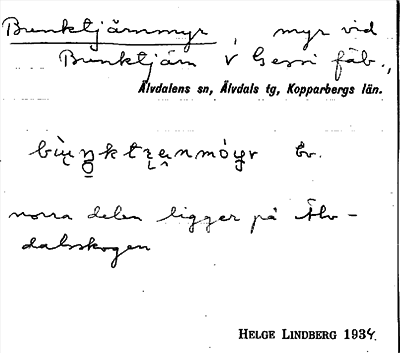 Bunktjärnmyr, myr vid
Bunktjärn v Gessi fäb.,
Älvdalens sn, Älvdals tg, Kopparbergs län.
Ev.
norra delen ligger på Älv-
dalsskogen
HELGE LINDBERG 1934.